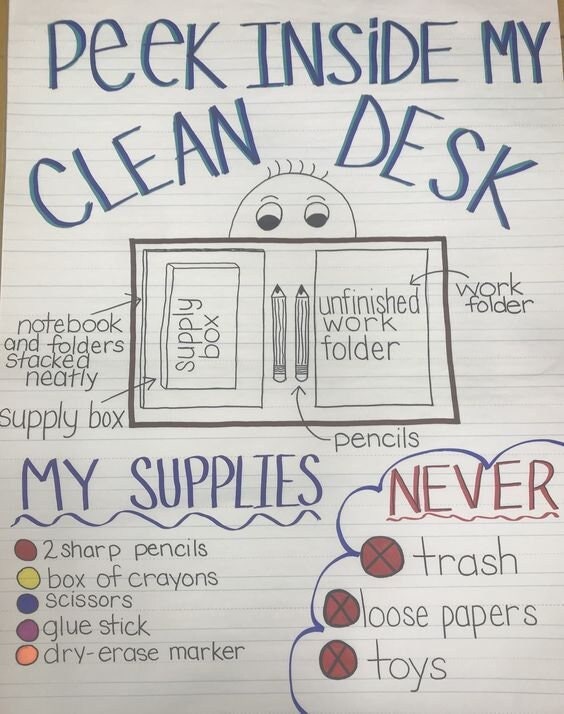 PEEK INSIDE MY
CLEAN DESK
supply
box
unfinished
work
folder
work
folder
notebook
and folders
stacked
neatly
supply box
pencils
MY SUPPLIES
2 sharp pencils
box of crayons
scissors
glue stick
dry-erase marker
NEVER
trash
loose papers
toys